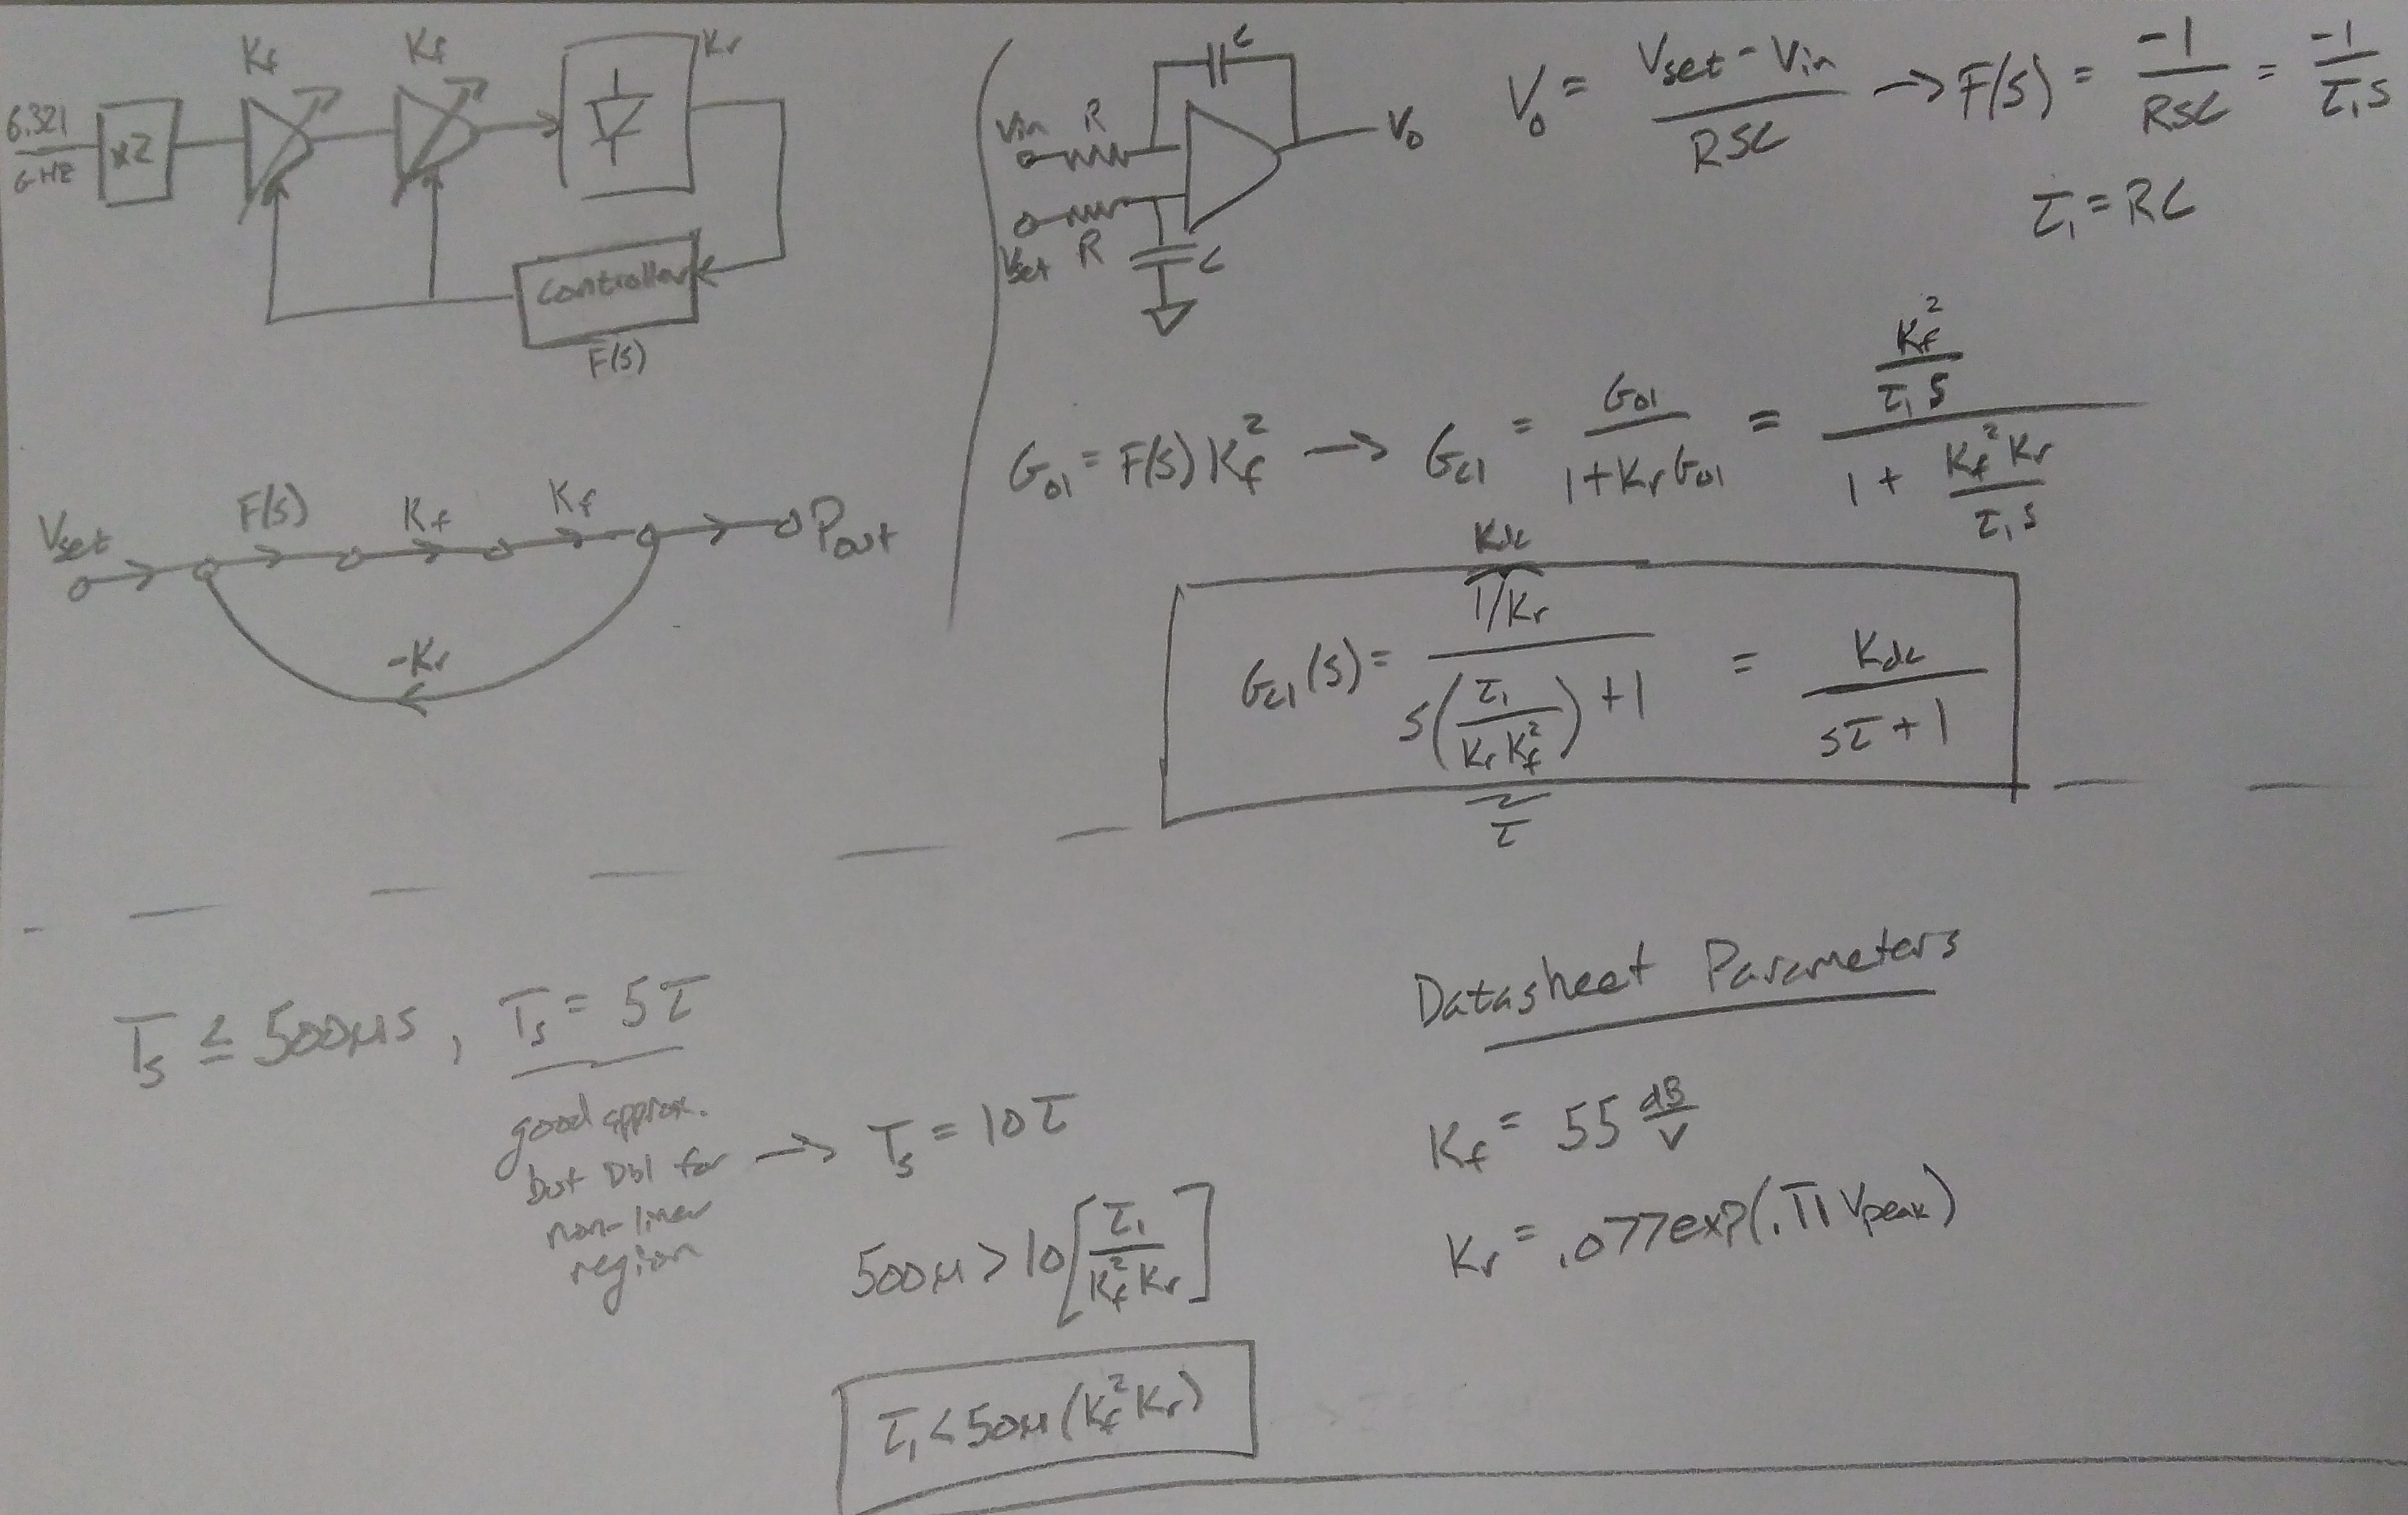 Kf Kf Kr
6.321 GHz
x2
Controller
F(s)
Vset F(s) Kf Kf Pout
-Kr
C
Vin R
Vo
Vset R C
Vo = (Vset - Vin)/(RSC) → F(s) = -1/(RSC) = -1/(τ₁s)
τ₁ = RC
Gol = F(s) Kf² → Gcl = Gol/(1+KrGol) = (Kf²/(τ₁s))/(1 + Kf²Kr/(τ₁s))
Kdc
Gcl(s) = (1/Kr)/(s(τ₁/(KrKf²)) + 1) = Kdc/(sτ + 1)
τ
Ts ≤ 500μs, Ts = 5τ
good approx.
but Dbl for → Ts = 10τ
non-linear
region
500μ > 10[τ₁/(Kf²Kr)]
τ₁ < 50μ (Kf²Kr)
Datasheet Parameters
Kf = 55 dB/V
Kr = .077exp(.11 Vpeak)